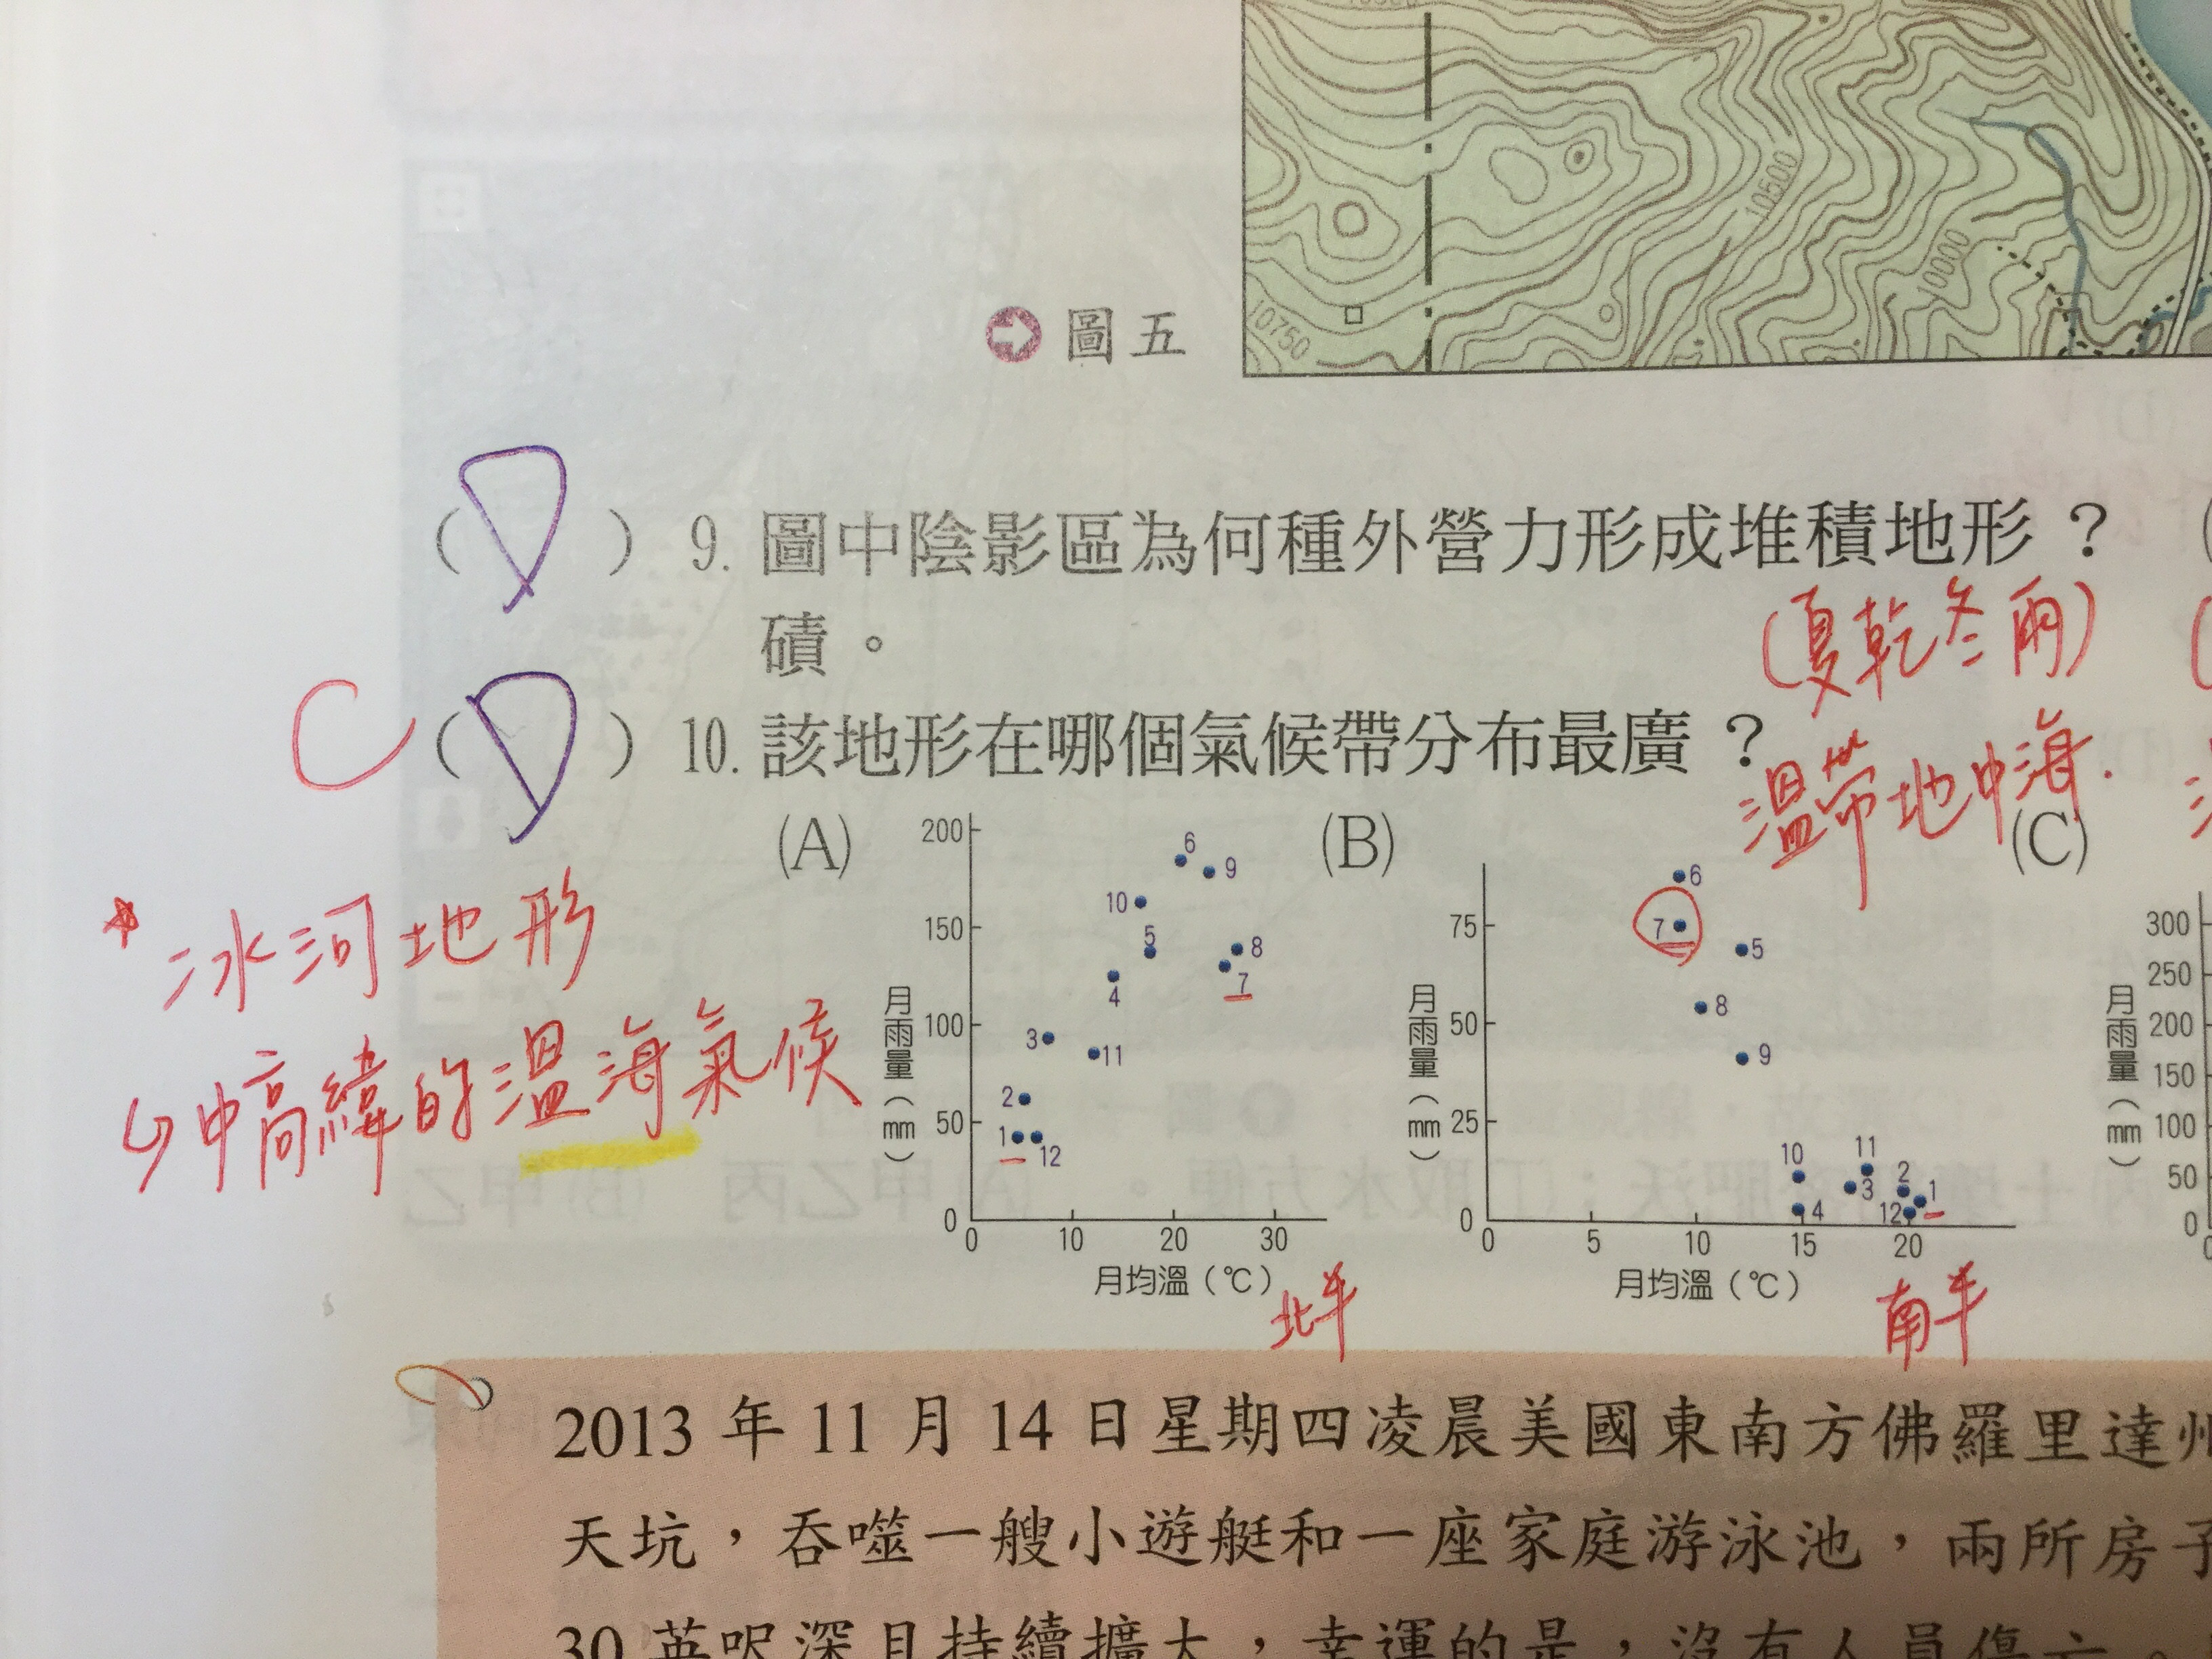 10500
10000
10750
圖五
(D) 9. 圖中陰影區為何種外營力形成堆積地形？
磧。
(夏乾冬雨)
C (D) 10. 該地形在哪個氣候帶分布最廣？
溫帶地中海.
(A) (B) (C)
*冰河地形
↳中高緯的溫海氣候
200
150
100
50
0
月雨量(mm)
6
9
10
5
8
7
4
3
11
2
1
12
0 10 20 30
月均溫(℃)
北半
75
50
25
0
月雨量(mm)
6
7
5
8
9
10
11
2
3
1
4
12
0 5 10 15 20
月均溫(℃)
南半
300
250
200
150
100
50
0
月雨量(mm)
0
2013 年 11 月 14 日星期四凌晨美國東南方佛羅里達州
天坑，吞噬一艘小遊艇和一座家庭游泳池，兩所房子
30 英呎深且持續擴大，幸運的是，沒有人員傷亡。